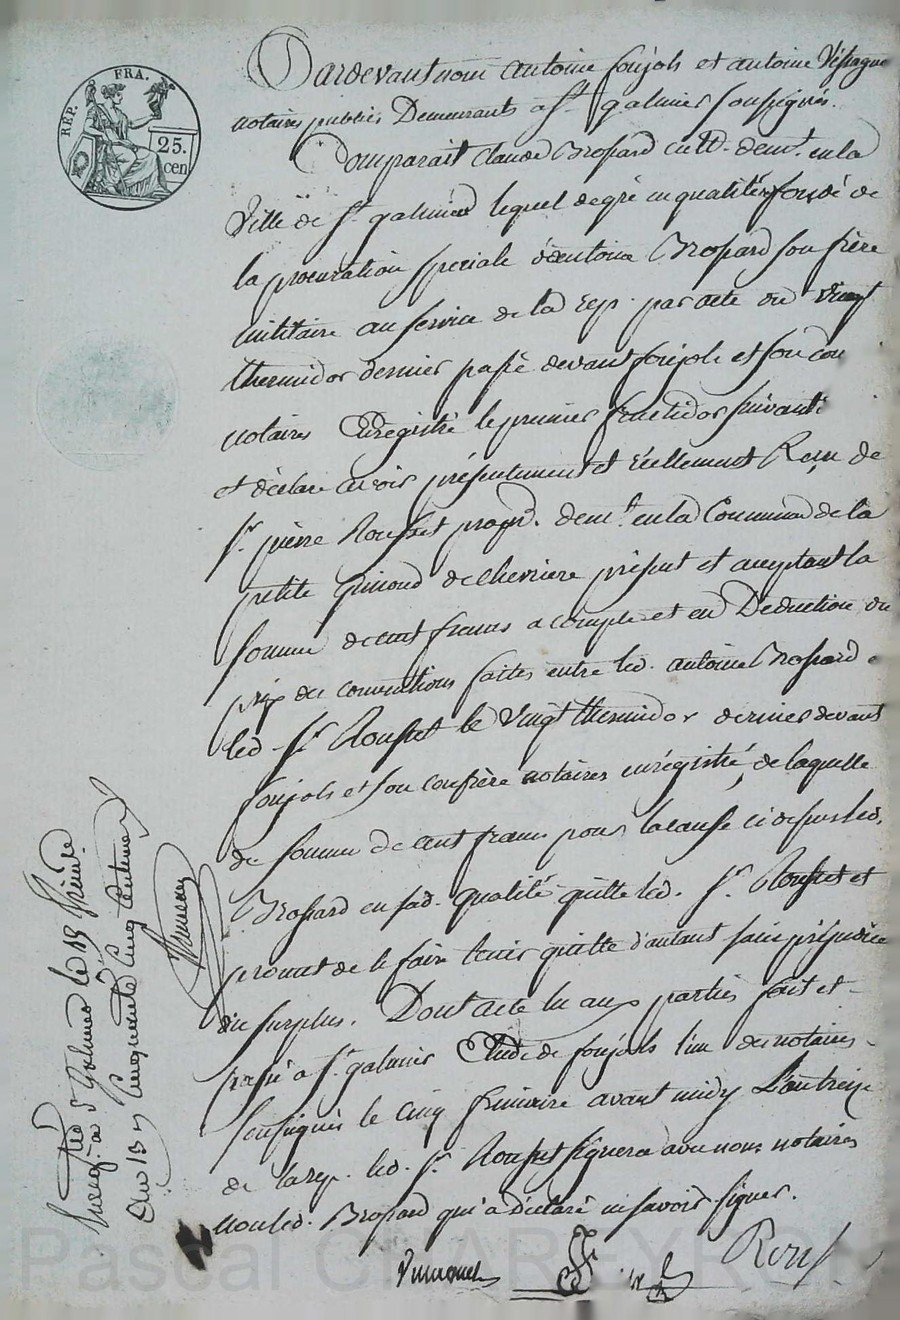 REP. FRA.
25.
cen
Pardevant nous antoine foujols et antoine
notaires publics Demeurants a St. galmier soussignés.
Comparait Claude Brossard cult. demt. en la
Ville de St. galmier lequel de gré en qualité de fondé de
la procuration speciale d'antoine Brossard son frère
militaire au service de la rep. par acte du vingt
thermidor dernier passé devant foujols et son con
notaires Enregistré le premier fructidor suivant
et déclare avoir présentement et réellement Reçu de
Sr. pierre Rousset propr. demt. en la Commune de la
petite Gimond de chevriere présent et acceptant la
somme de cent francs a compte et en Deduction du
prix des conventions faites entre led. antoine Brossard
led. Sr. Rousset le Vingt thermidor dernier devant
foujols et son confrère notaires enrégistré, de laquelle
de somme de cent francs pour la cause ci dessus led.
Brossard en sad. qualité quitte led. Sr. Rousset et
promet de le faire tenir quitte d'autant sans préjudice
du surplus. Dont acte lu aux parties fait et
passé a St. galmier Etude de foujols l'un des notaires
soussignés le cinq frimaire avant midy L'an treize
de la rep. led. Sr. Rousset signera avec nous notaires
non led. Brossard qui a déclaré ne savoir signer.
Rous
Enreg. a St. Galmier le 15 frim.re
an 13 cinquante cinq centimes
Pascal CHAREYRON